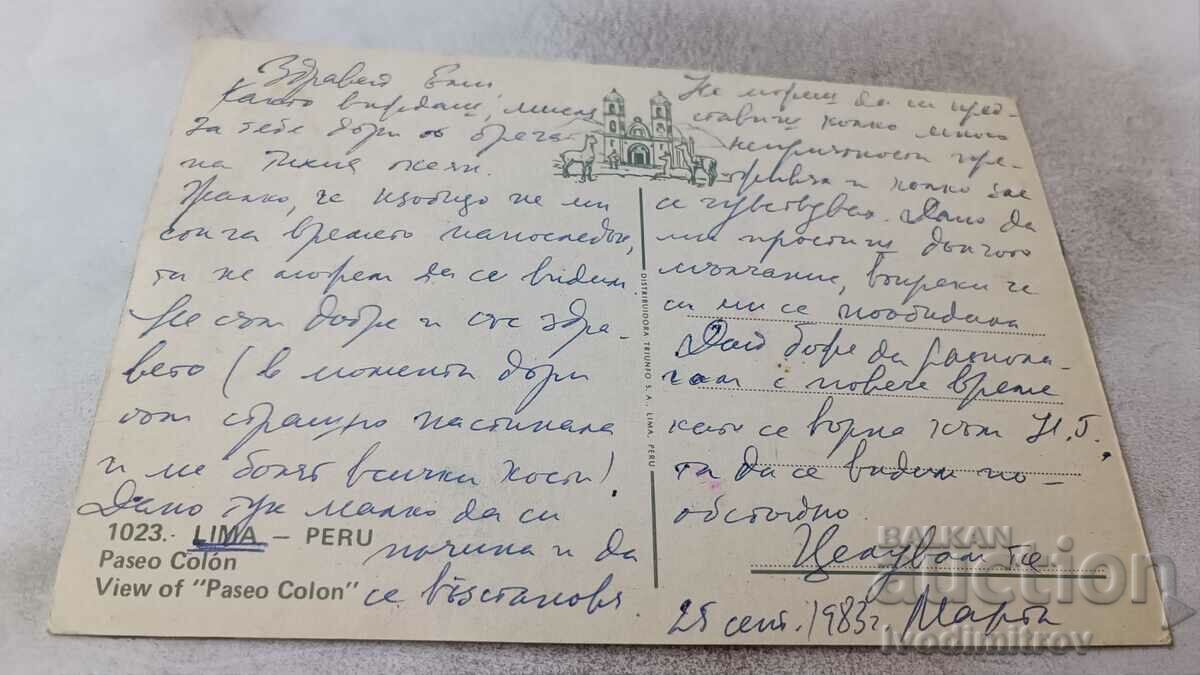 Здравей Ели,
Както виждаш, мисля
за тебе дори от брега
на Тихия океан.
Жалко, че изобщо не ми
стига времето напоследък,
та не можем да се видим
Не съм добре и със здра-
вето (в момента дори
съм страшно настинала
и ме болят всички кости)
Дано тук малко да си
почина и да
се възстановя.
1023.- LIMA - PERU
Paseo Colón
View of "Paseo Colon"
DISTRIBUIDORA TRIUNFO S. A. - LIMA, PERU
Не можеш да си пред-
ставиш колко много
неприятности
и колко зле
се чувствувах. Дано да
ми простиш дългото
мълчание, въпреки че
си ми се пообидила
Дай боже да располагам с повече време
като се върна към Н.Г.
та да се видим по-
обстойно.
Целувам те
25 септ. 1983г. Марта
BALKAN
auction
ivodimitrov